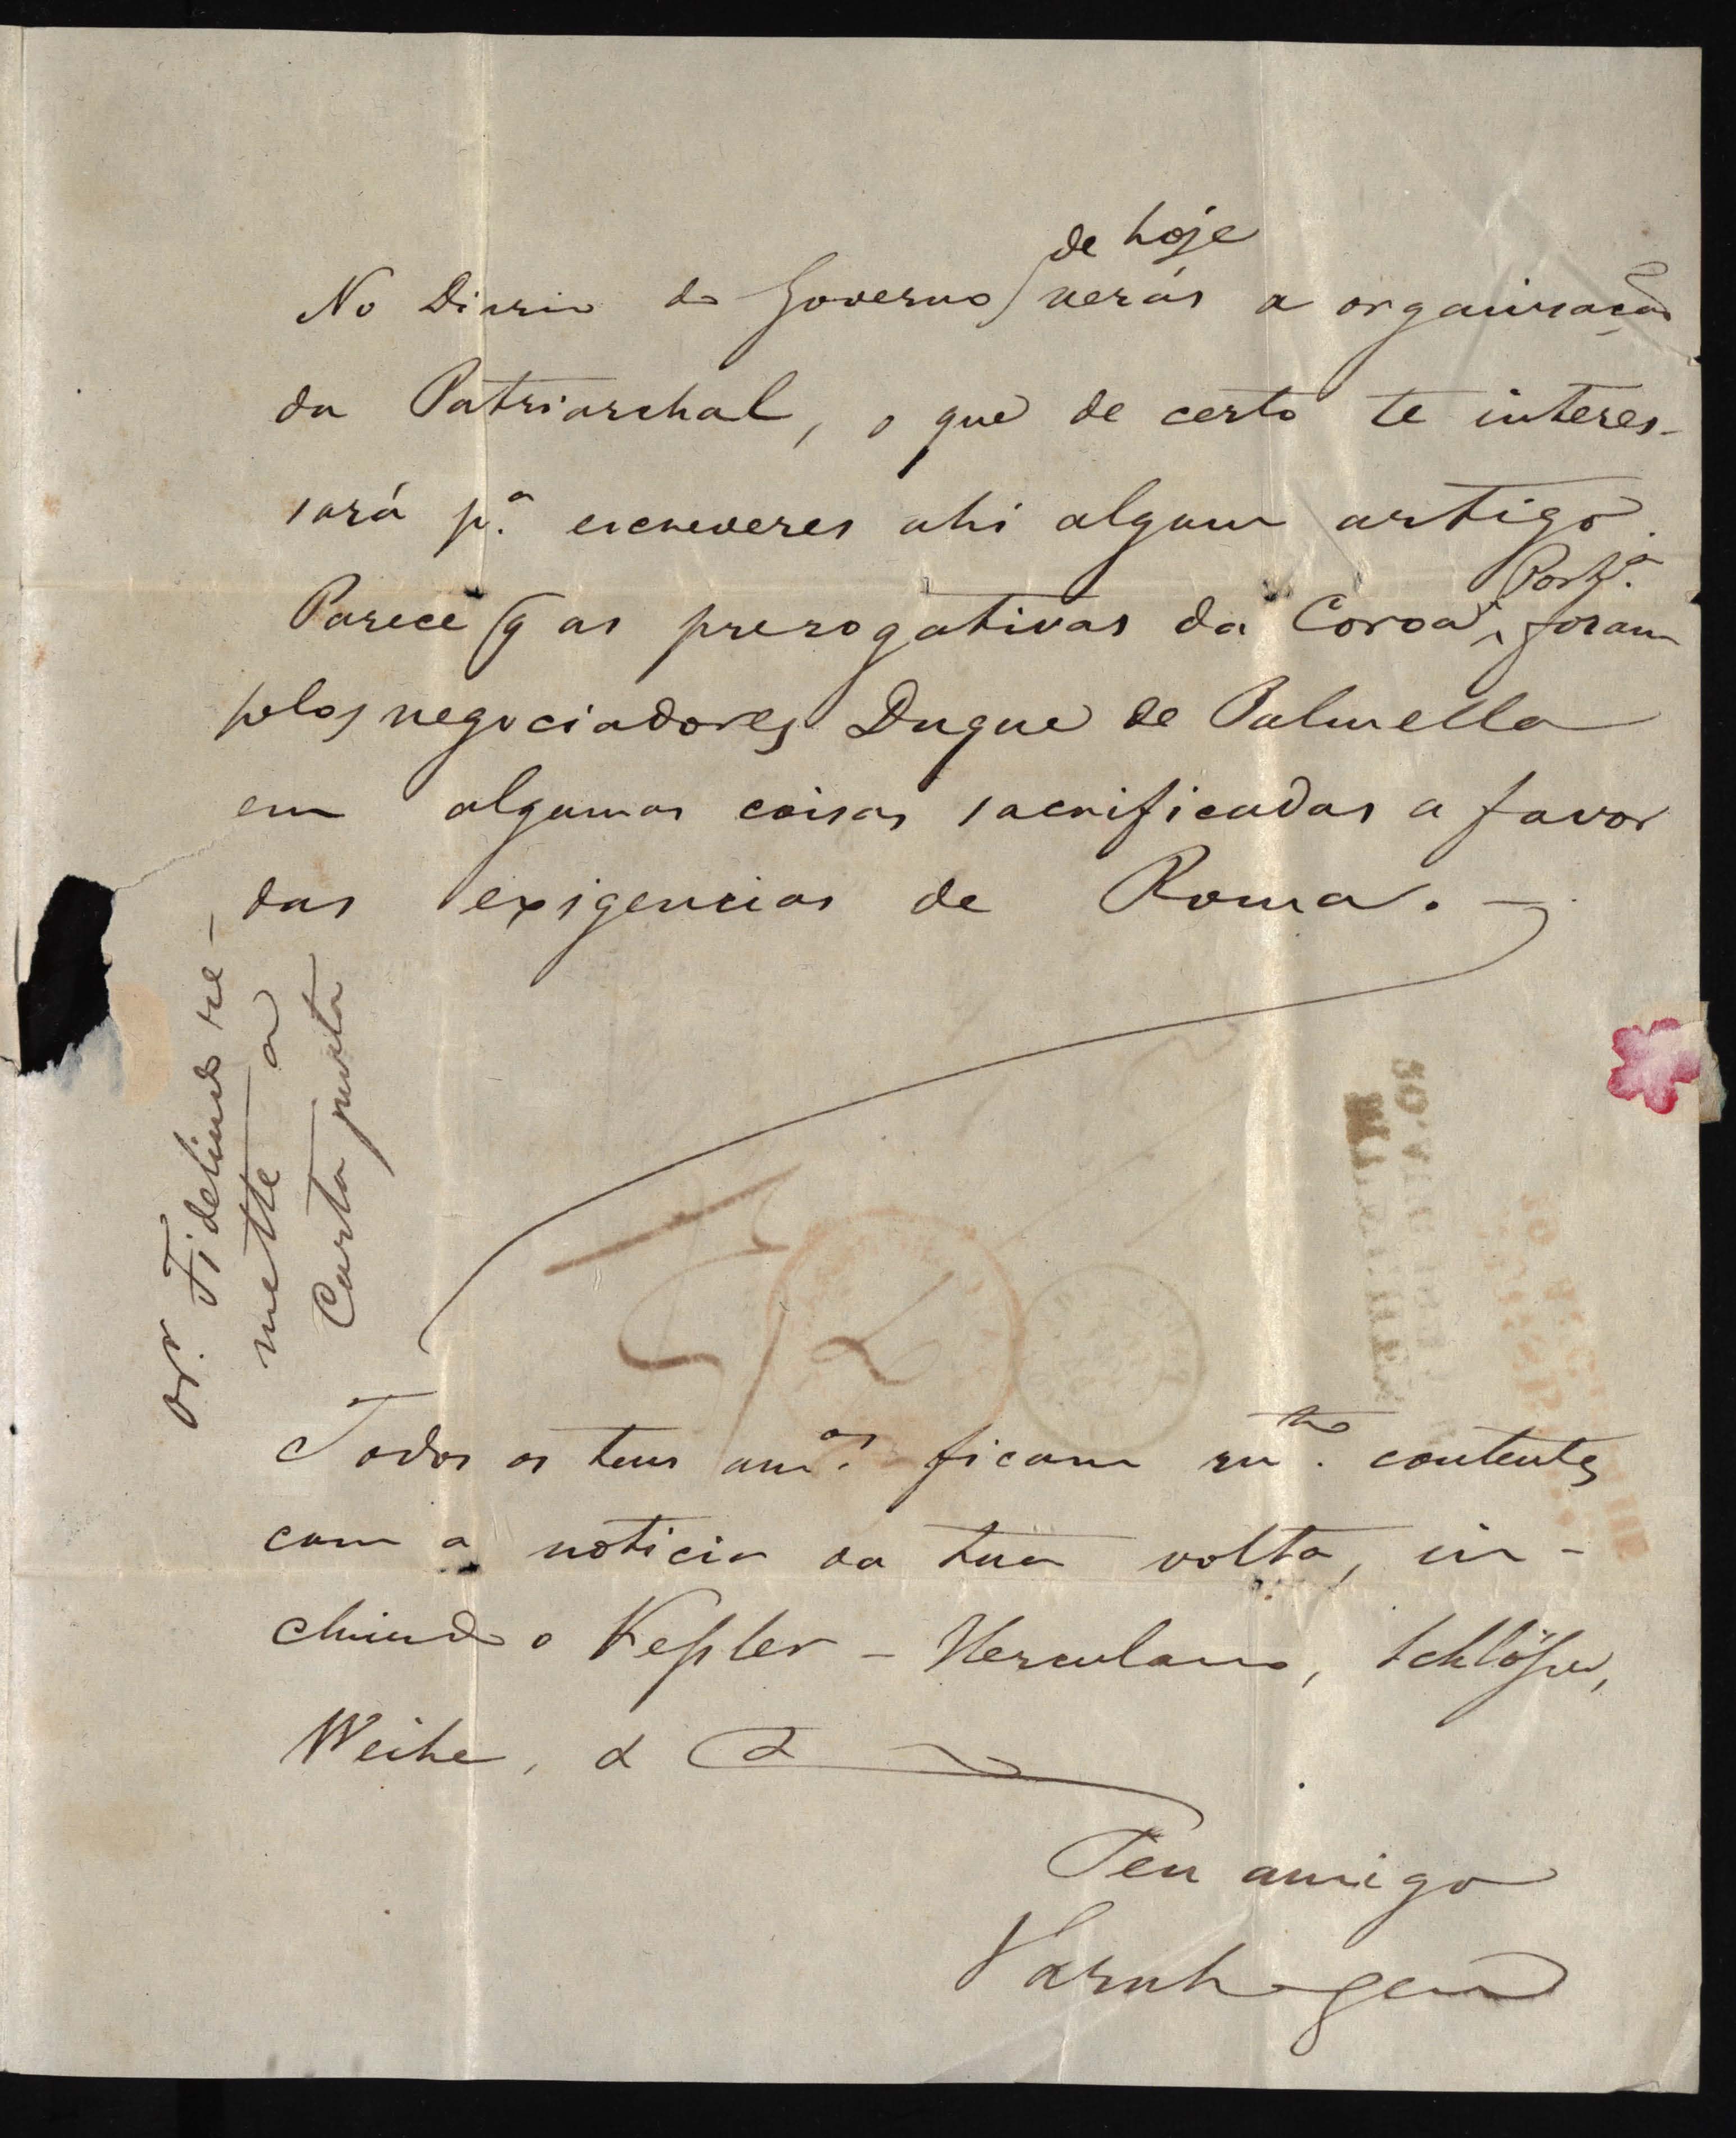 de hoje
No Diario do Governo verás a organisação
da Patriarchal, o que de certo te interes-
sará p.ª escreveres ahi algum artigo.
Portg.ª
Parece q as prerogativas da Coroa, foram
pelos negociadores Duque de Palmella
em algumas coisas sacrificadas a favor
das exigencias de Roma. —
O Sr. Fidelino re-
mette a
Carta junta
Todos os teus am.os ficam m.to contentes
com a noticia da tua volta, in-
cluindo o Keßler – Herculano,
Weihe, &
Teu amigo
Varnhagen